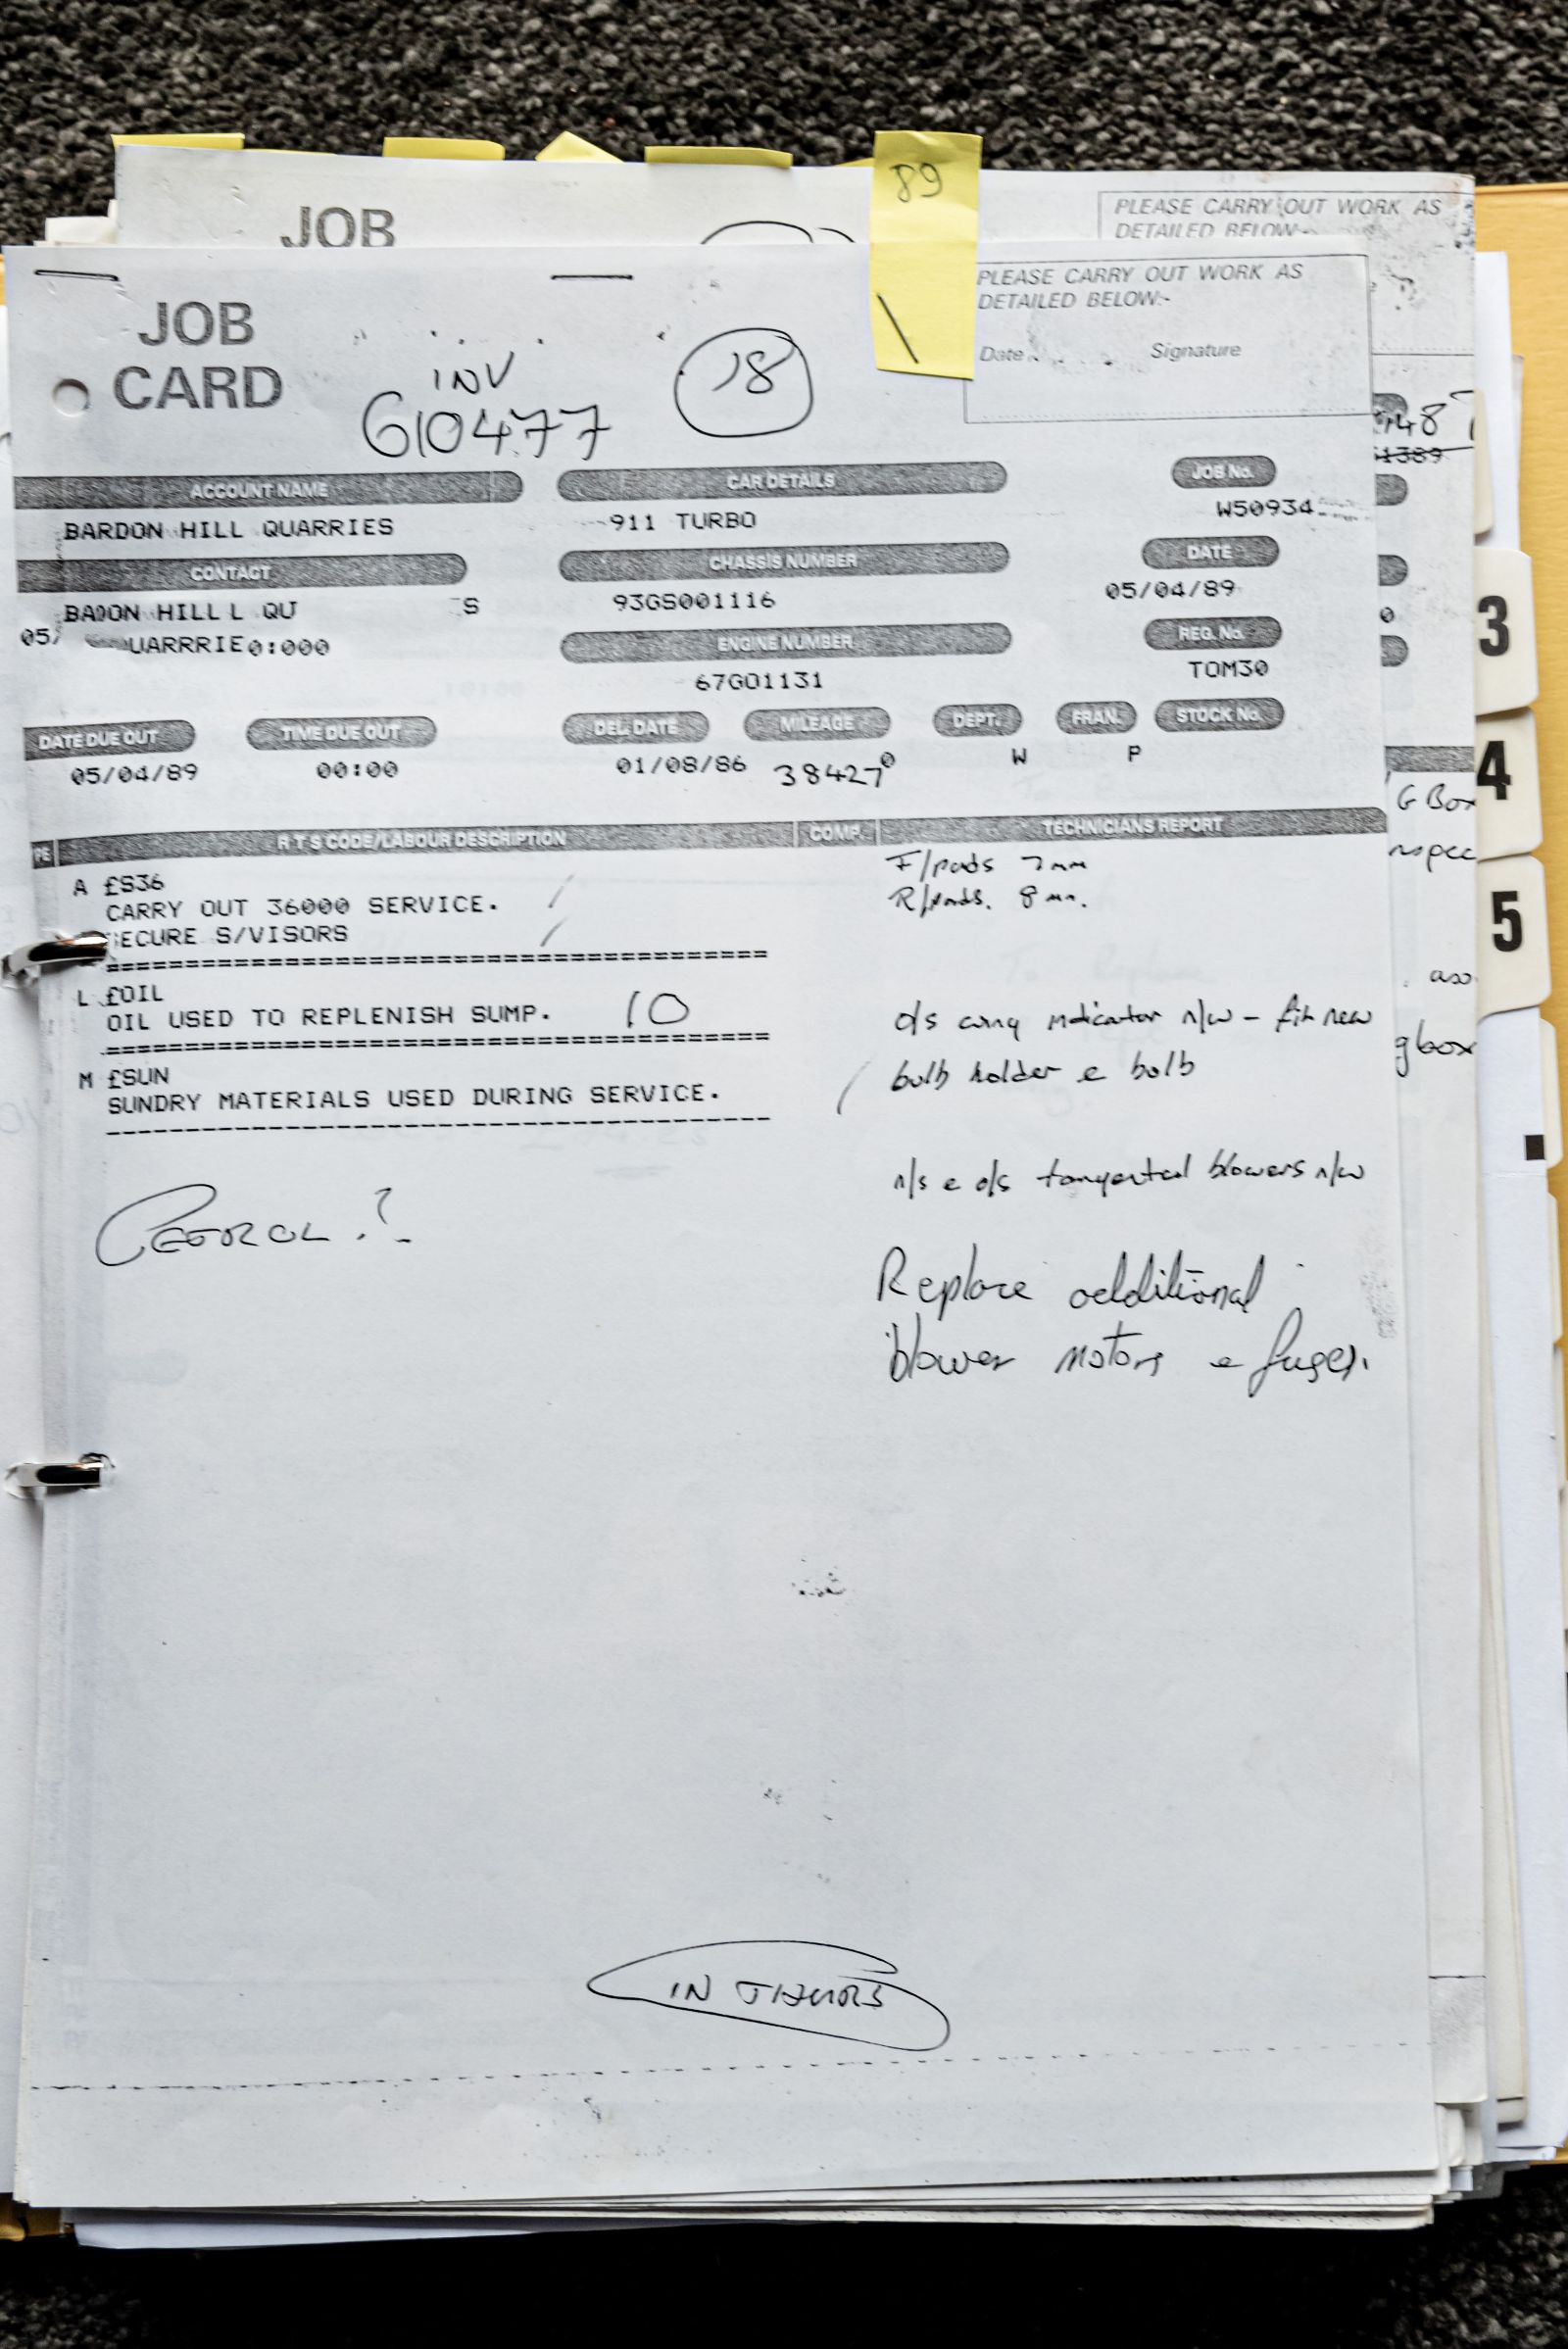 89
JOB
PLEASE CARRY OUT WORK AS
DETAILED BELOW:-
JOB
CARD
INV
610477
18
PLEASE CARRY OUT WORK AS
DETAILED BELOW:-
Date
Signature
ACCOUNT NAME
CAR DETAILS
JOB No.
BARDON HILL QUARRIES
911 TURBO
W50934
CONTACT
CHASSIS NUMBER
DATE
BADON HILL L QU S
93GS001116
05/04/89
05/ UARRRIE0:000
ENGINE NUMBER
REG. No.
67G01131
TOM30
DATE DUE OUT
TIME DUE OUT
DEL. DATE
MILEAGE
DEPT.
FRAN.
STOCK No.
05/04/89
00:00
01/08/86
38427
W
P
R T S CODE/LABOUR DESCRIPTION
COMP.
TECHNICIANS REPORT
A £S36
CARRY OUT 36000 SERVICE.
ECURE S/VISORS
F/pads 7mm
R/pads. 8mm.
L £OIL
OIL USED TO REPLENISH SUMP. 10
M £SUN
SUNDRY MATERIALS USED DURING SERVICE.
o/s wing indicator n/w - fit new
bulb holder e bulb
n/s e o/s tangential blowers n/w
PETROL ?
Replace additional
blower motors e fuses.
IN
1389
G Box
gbox
3
4
5